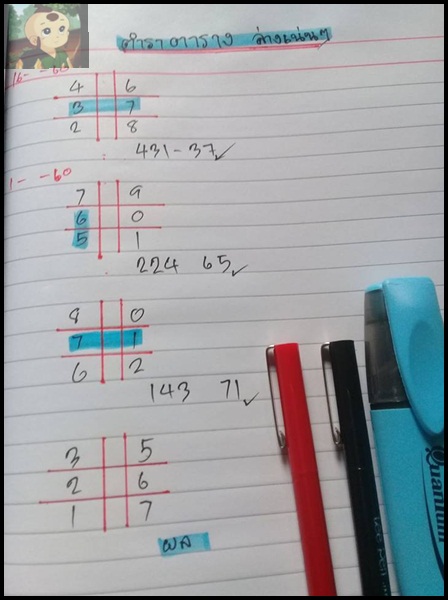 ตำราตาราง ล่างแน่นๆ
16- -60
4 6
3 7
2 8
431-37✓
1- -60
7 9
6 0
5 1
224 65✓
8 0
7 1
6 2
143 71✓
3 5
2 6
1 7
ผล
Quantum